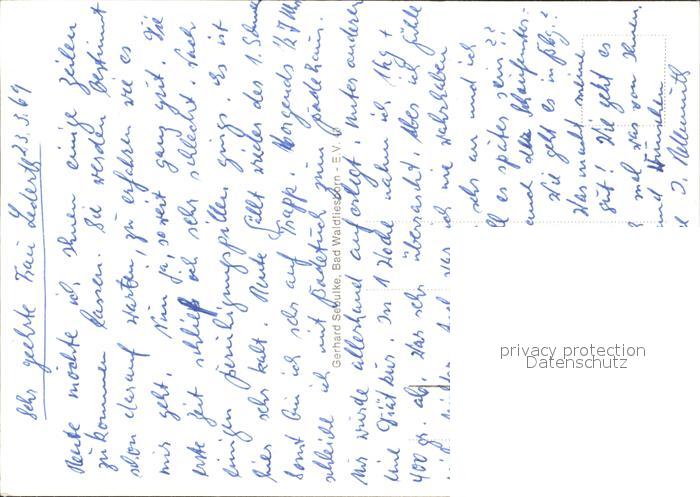 Sehr geehrte Frau 23.3.69
Heute möchte ich Ihnen einige Zeilen
zukommen lassen. Sie werden bestimmt
schon darauf warten, zu erfahren wie es
mir geht. Nun ja, so weit ganz gut. Die
erste Zeit schlief ich sehr schlecht. Nach
einigen Beruhigungspillen gings. Es ist
hier sehr kalt. Heute fällt wieder der 1. Schnee
Sonst bin ich sehr auf Trapp. Morgends 1/2 7 Uhr
schleiche ich mit Badetuch zum Badehaus.
Mir wurde allerhand auferlegt. Unter anderem
eine Diätkur. In 1 Woche nahm ich 1 kg +
400 gr. ab. Was sehr überrascht. Aber ich fühle
ich wie
sehr an und ich
es später sein??
und
Wie geht es in
Was macht meine
gut! Wie geht es
mal was von Ihnen.
und
Gerhard Schulke, Bad Waldliesborn - E.V.
privacy protection
Datenschutz